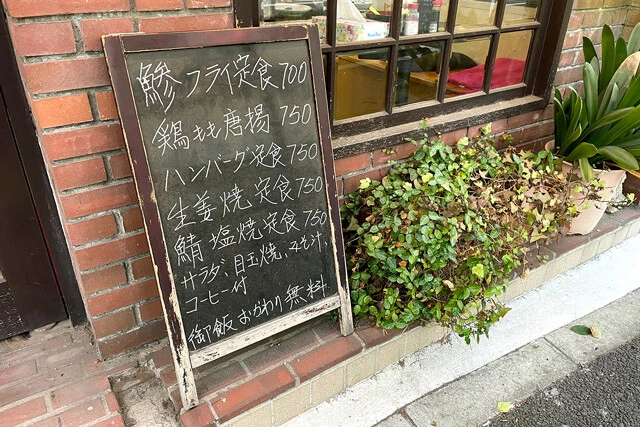 鯵フライ定食700
鶏もも唐揚 750
ハンバーグ定食750
生姜焼定食750
鯖塩焼定食750
サラダ、目玉焼、みそ汁、
コーヒー付
御飯おかわり無料